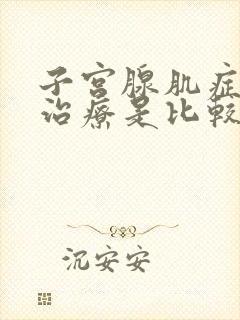 子宫腺肌症
治療是比較
沉安安